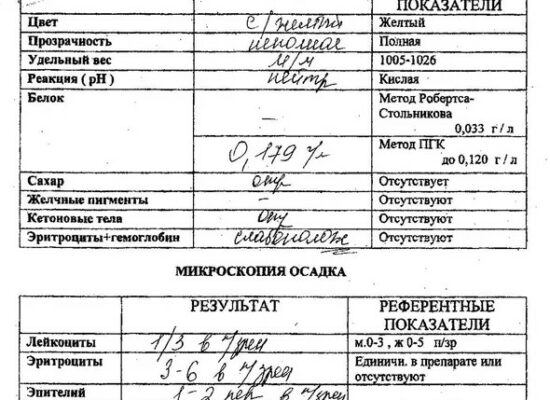 ПОКАЗАТЕЛИ
Цвет с/желтый Желтый
Прозрачность неполная Полная
Удельный вес м/м 1005-1026
Реакция ( pH ) нейтр Кислая
Белок Метод Робертса-
Стольникова
0,033 г / л
0,179 г/л Метод ПГК
до 0,120 г / л
Сахар отр Отсутствует
Желчные пигменты – Отсутствуют
Кетоновые тела отр Отсутствуют
Эритроциты+гемоглобин слабополож Отсутствуют
МИКРОСКОПИЯ ОСАДКА
РЕЗУЛЬТАТ РЕФЕРЕНТНЫЕ
ПОКАЗАТЕЛИ
Лейкоциты 1/3 в п/зрен м.0-3 , ж 0-5 п/зр
Эритроциты 3-6 в п/зрен Единичн. в препарате или
отсутствуют
Эпителий 1-2 в п/зрен